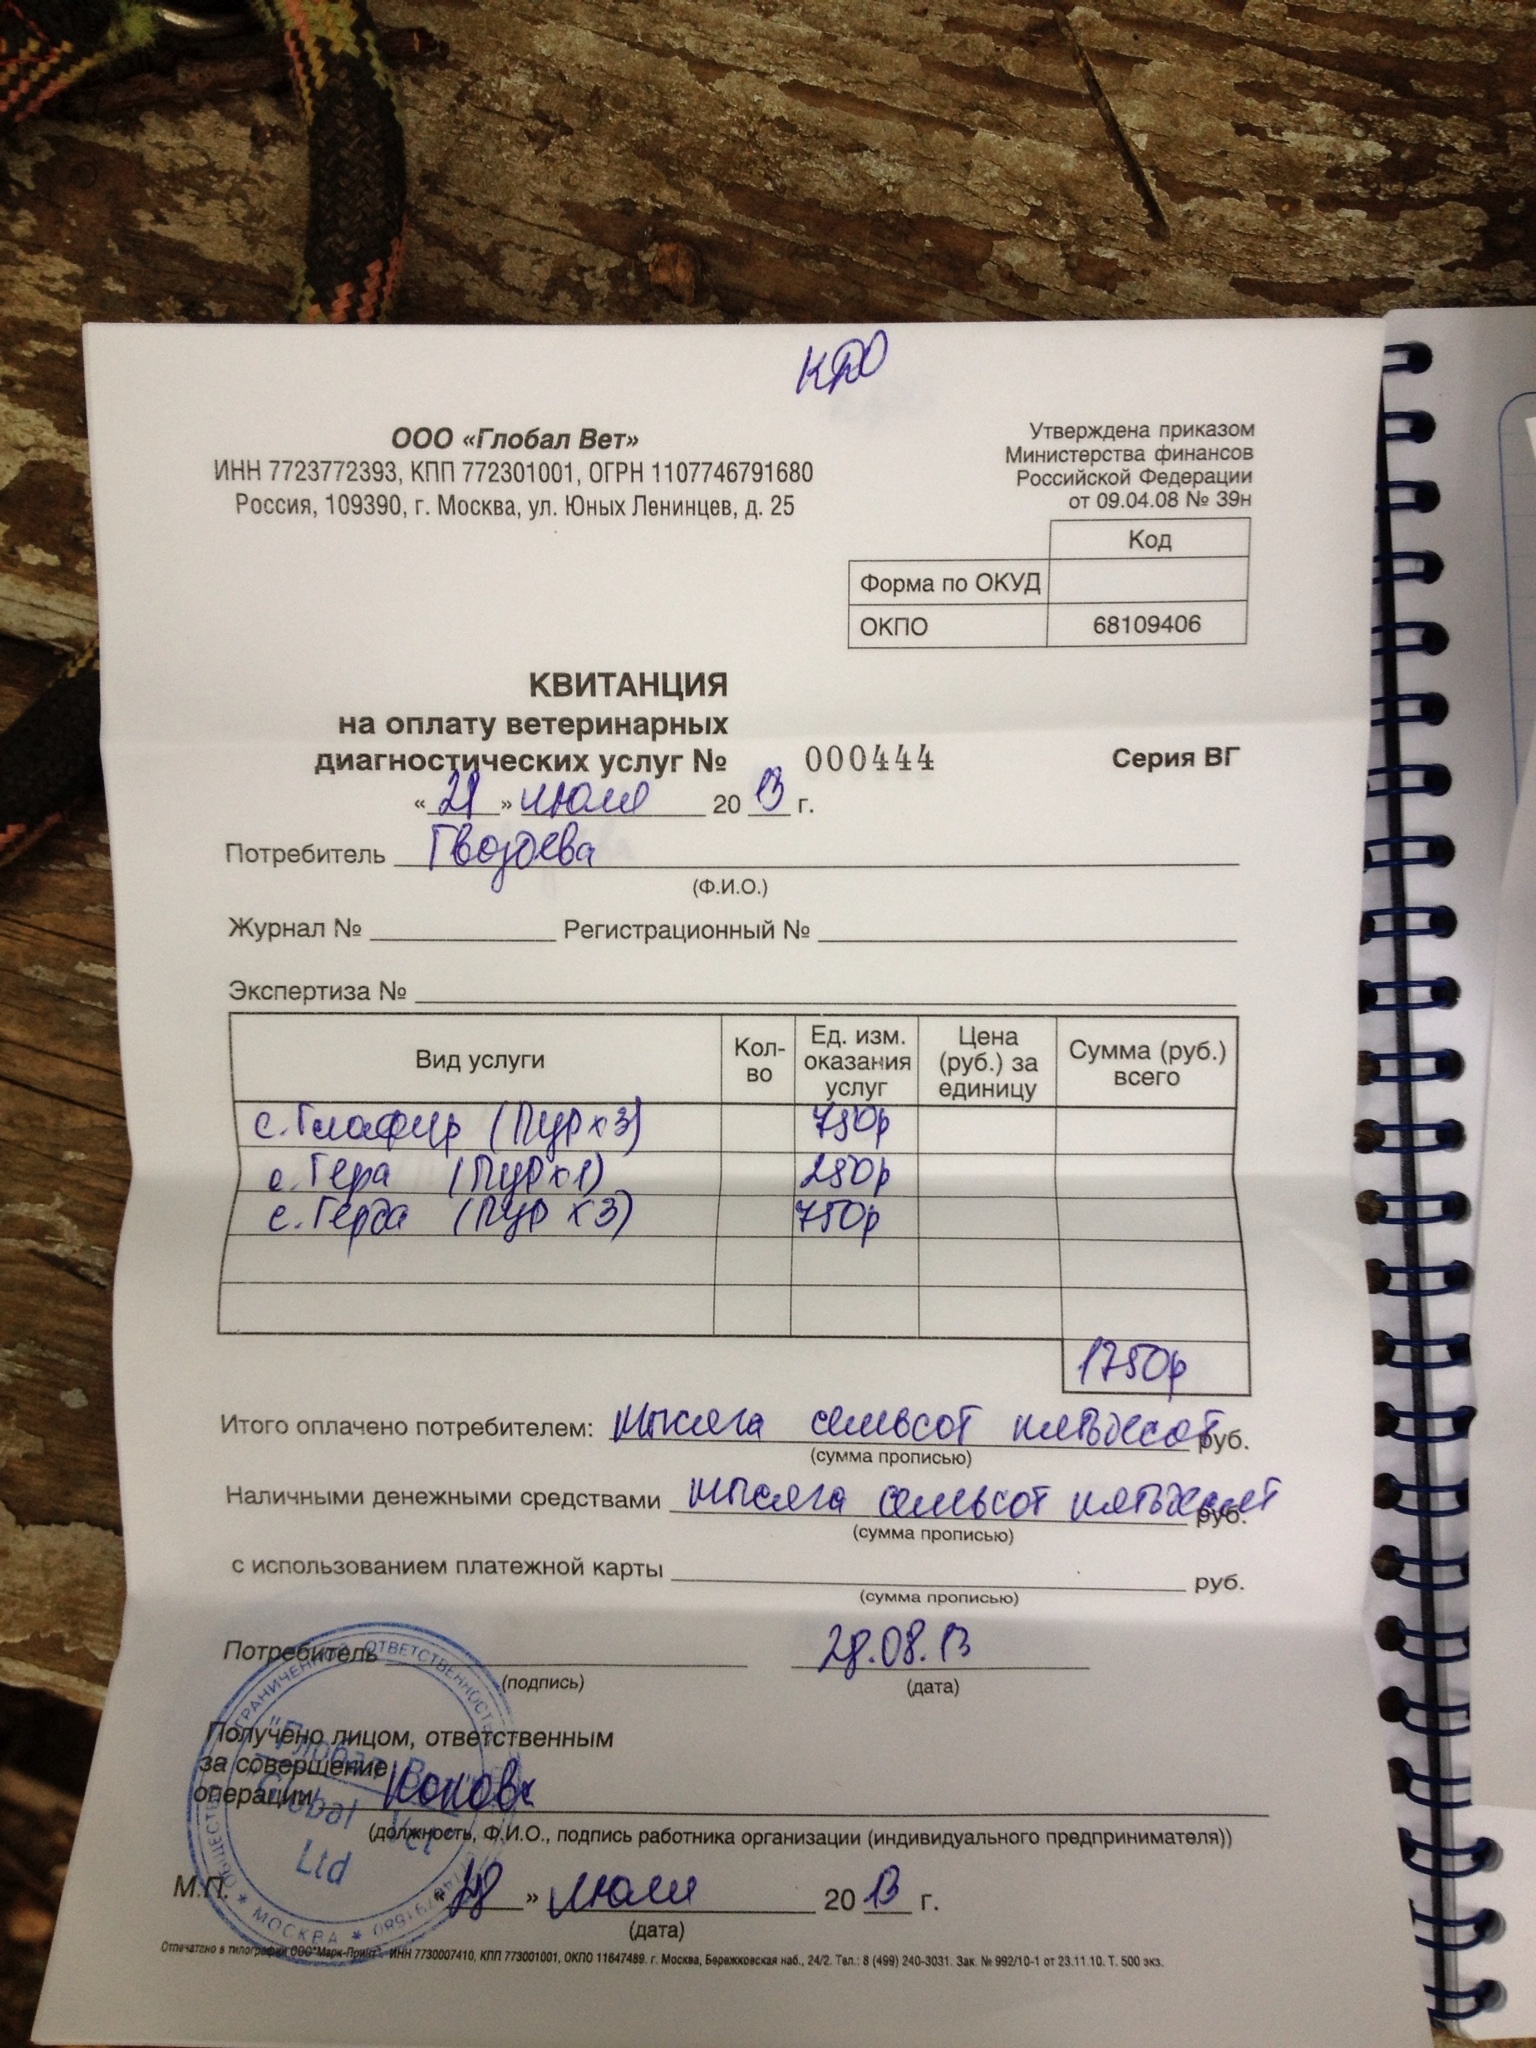 КДО
ООО «Глобал Вет»
ИНН 7723772393, КПП 772301001, ОГРН 1107746791680
Россия, 109390, г. Москва, ул. Юных Ленинцев, д. 25
Утверждена приказом
Министерства финансов
Российской Федерации
от 09.04.08 № 39н
Код
Форма по ОКУД
ОКПО 68109406
КВИТАНЦИЯ
на оплату ветеринарных
диагностических услуг № 000444 Серия ВГ
«28» июля 2013 г.
Потребитель Гвоздева
(Ф.И.О.)
Журнал № Регистрационный №
Экспертиза №
Вид услуги Кол-во Ед. изм. оказания услуг Цена (руб.) за единицу Сумма (руб.) всего
с. Глафир (Пур х 3) 750р
с. Гера (Пур х 1) 250р
с. Герда (Пур х 3) 750р
1750р
Итого оплачено потребителем: тысяча семьсот пятьдесят руб.
(сумма прописью)
Наличными денежными средствами тысяча семьсот пятьдесят руб.
(сумма прописью)
с использованием платежной карты руб.
(сумма прописью)
Потребитель 28.08.13
(подпись) (дата)
Получено лицом, ответственным
за совершение
операции
(должность, Ф.И.О., подпись работника организации (индивидуального предпринимателя))
М.П. «28» июля 2013 г.
(дата)
"Глобал Вет"
"Global Vet"
Ltd
МОСКВА
Отпечатано в типографии ООО"Марк-Принт". ИНН 7730007410, КПП 773001001, ОКПО 11647489. г. Москва, Бережковская наб., 24/2. Тел.: 8 (499) 240-3031. Зак. № 992/10-1 от 23.11.10. Т. 500 экз.